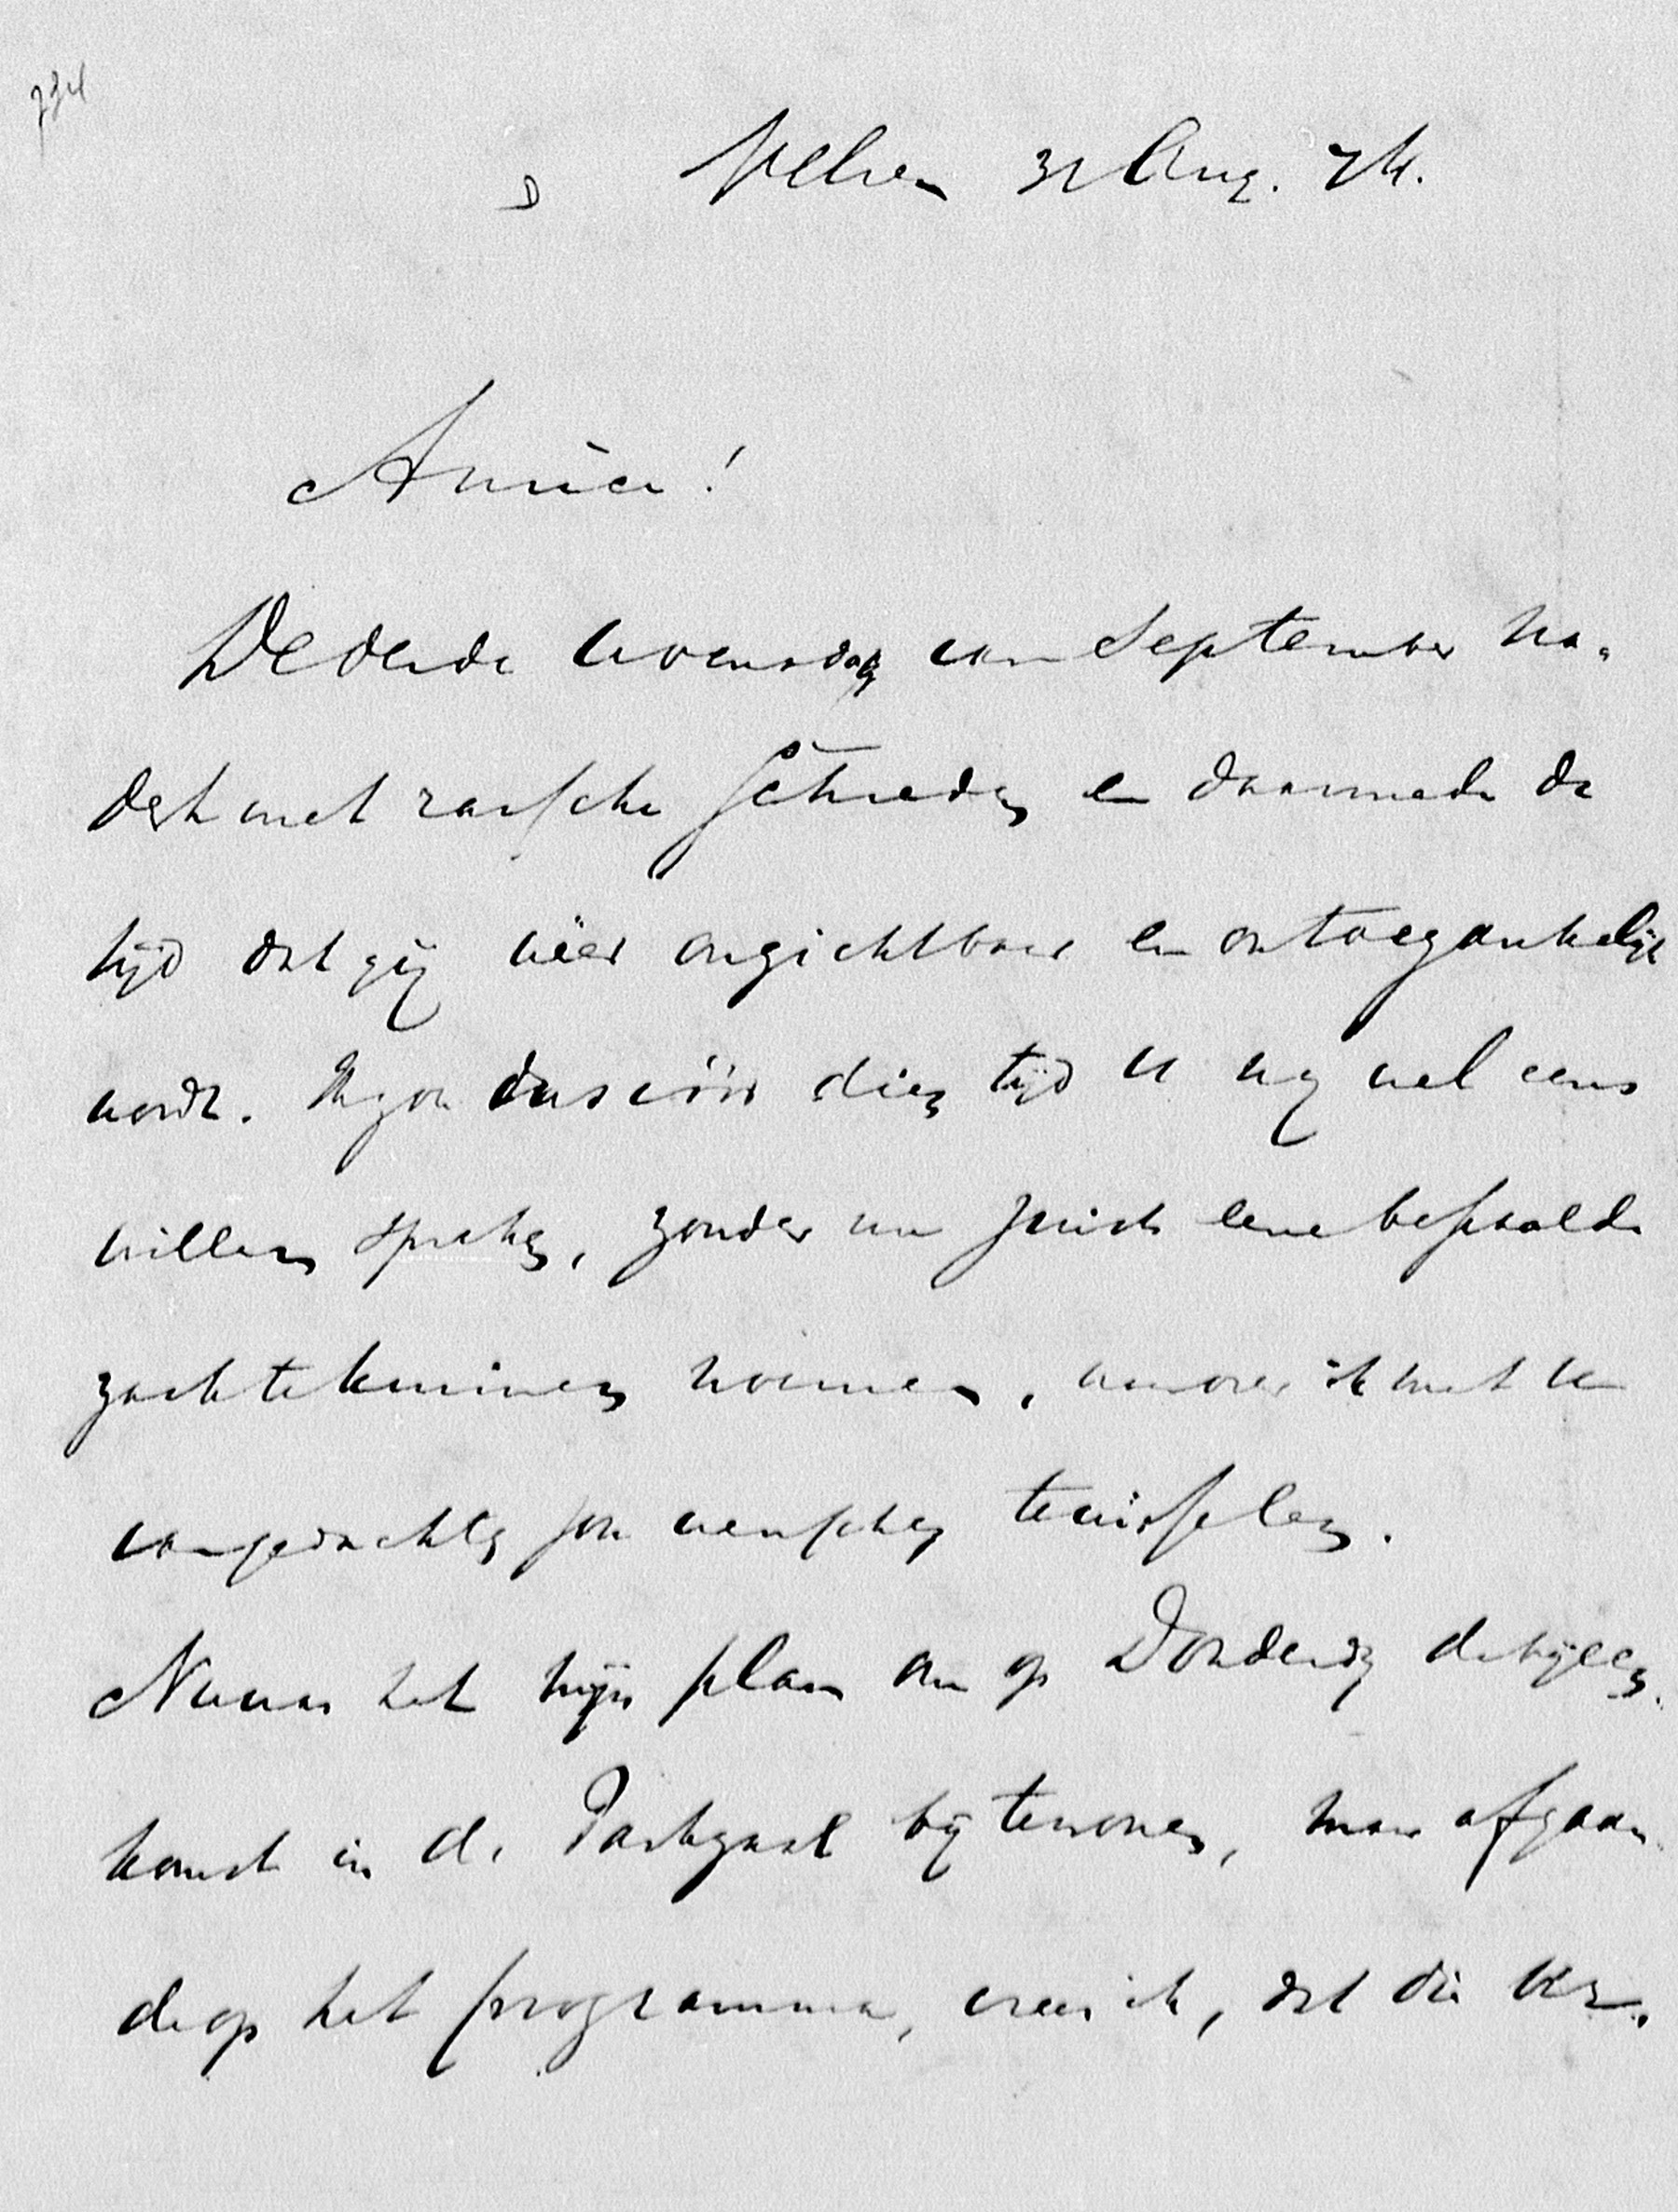 734
D Velsen 31 Aug. 74.
Amice!
De derde woensdag van September na-
dert met rassche schreden en daarmede de
tijd dat gij weer onzichtbaar en ontoegankelijk
wordt. Ik zou dus vóór dien tijd U nog wel eens
willen spreken, zonder nu juist eene bepaalde
zaak te kunnen noemen, waarover ik met U
van gedachten zou wenschen te wisselen.
Nu was het mijn plan om op Donderdag de bijeen-
komst in de Parkzaal bij te wonen, maar afgaan-
de op het programma, vrees ik, dat die ver-